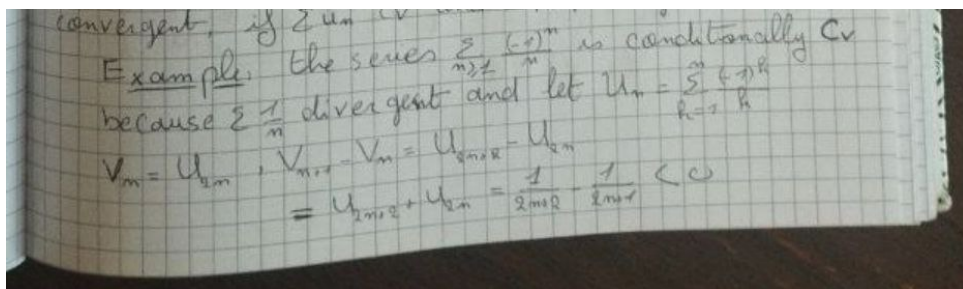 convergent, if Σ un cv
Example. the series Σ n≥1 (-1)^n/n is conditionally Cv
because Σ 1/n divergent and let Un = Σ k=1 n (-1)^k/k
Vn = U2n, Vn+1 - Vn = U2n+2 - U2n
= U2n+2 + U2n = 1/2n+2 - 1/2n+1 < 0